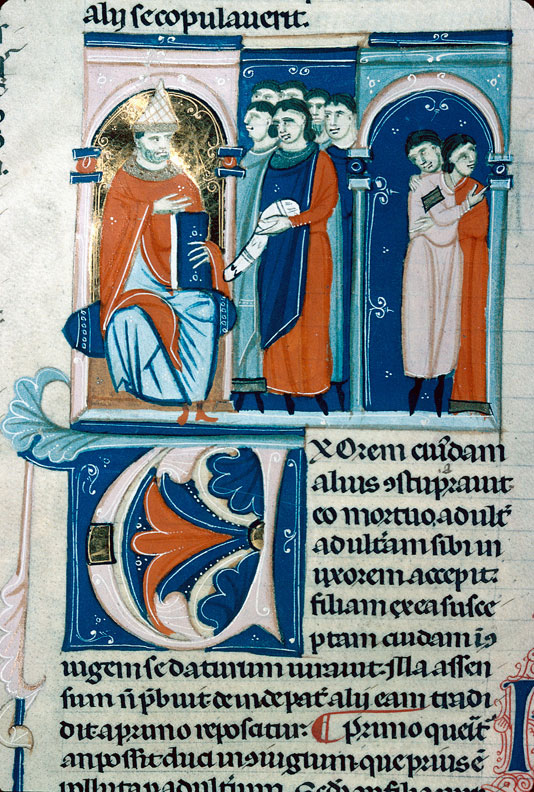 alij se copulauerit.
XOrem cuiꝰdam
alius ꝯstuprauit
eo mortuo. adultͬ
adultͣam sibi in
uxorem accepit:
filiam ex ea susce
ptam cuidam in ꝯ
iugem se daturum iurauit. Illa assen
sum ñ p̄buit. deinde patͬ alij eam tradi
dit. a primo reposcitur: Primo querit̃
an possit duci in ꝯiugium. que prius ē
polluta p adultium.